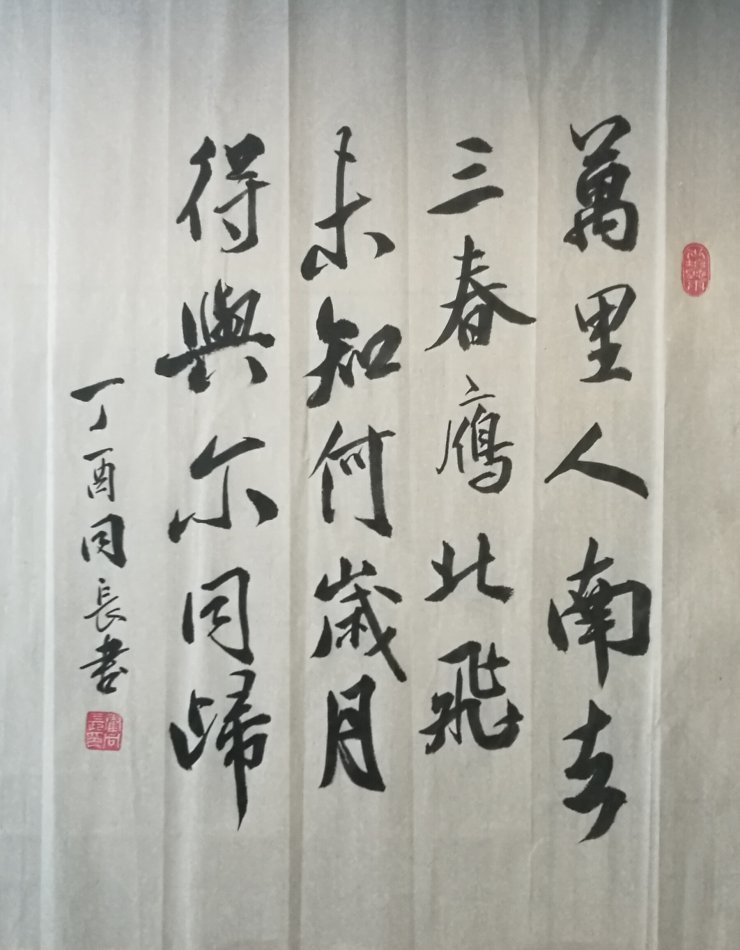 萬里人南去
三春鴈北飛
未知何歲月
得與尔同歸
丁酉同長書